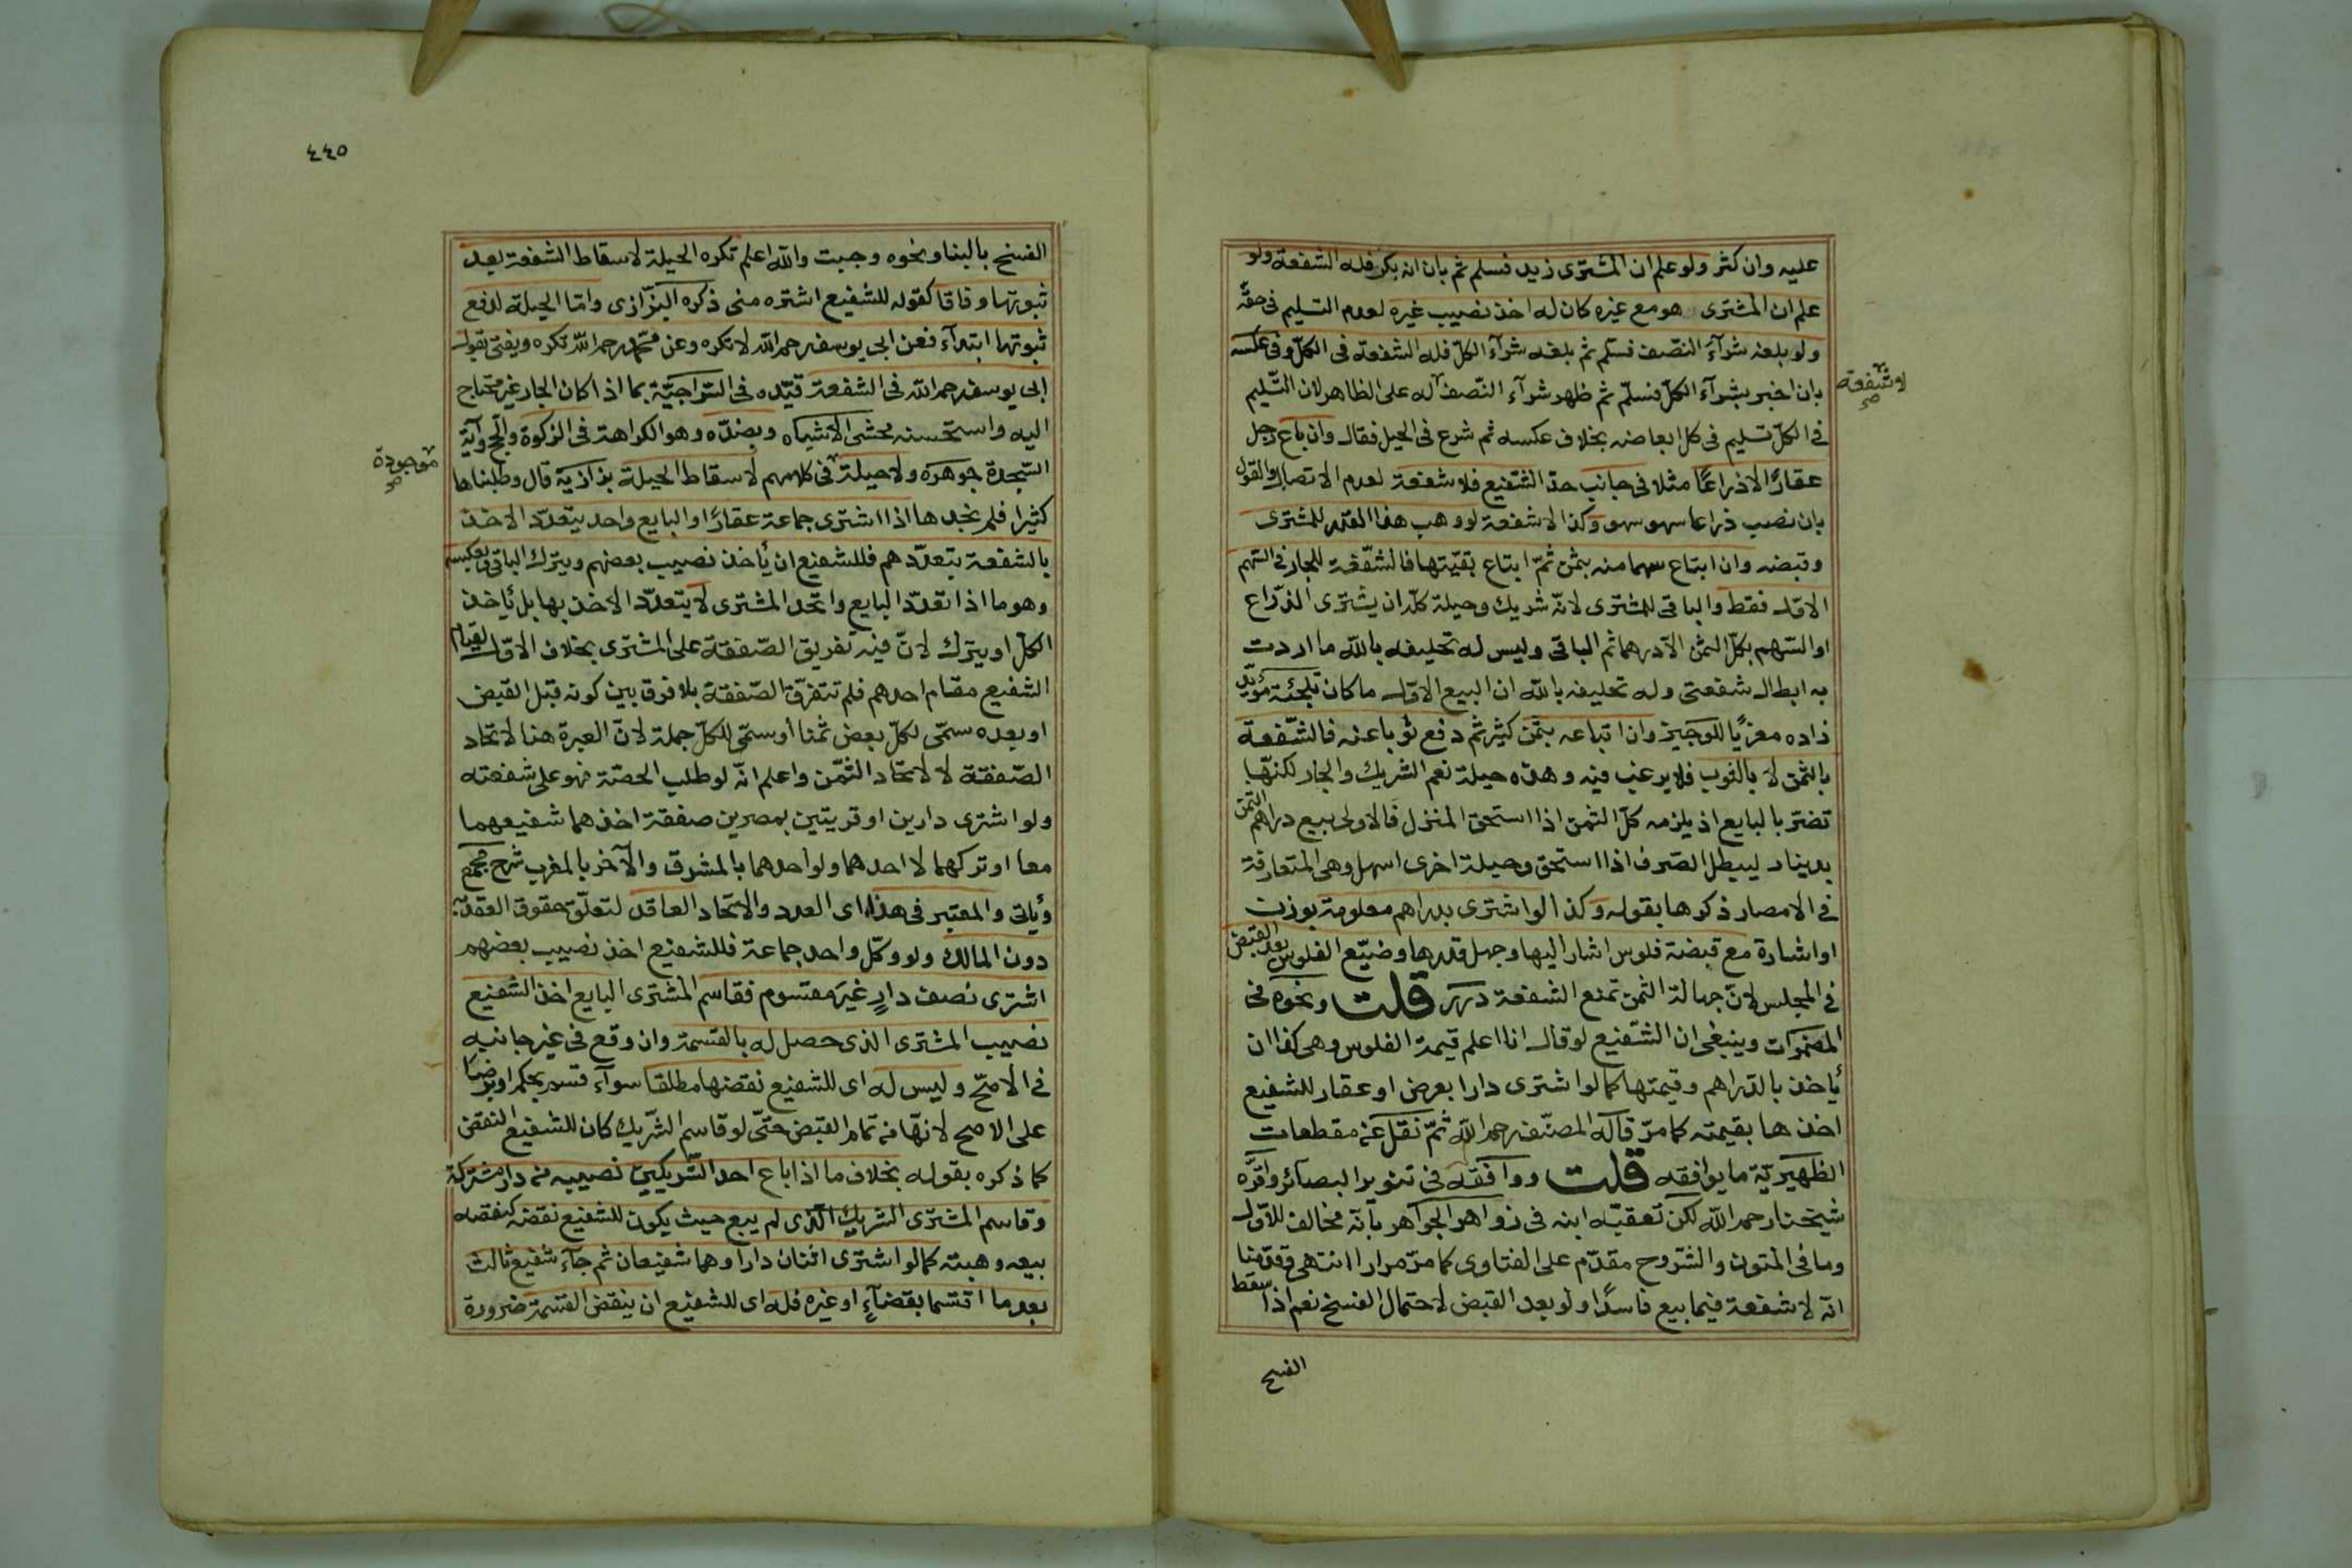 عليه وان كثر ولو علم ان المشترى زيد فسلم ثم بان انه بكر فله الشفعة ولو
علم ان المشترى هو مع غيره كان له اخذ نصيب غيره لعدم التسليم فى حقه
ولو بلغه شرآء النصف فسلم ثم بلغه شرآء الكلّ فله الشفعة فى الكلّ وفى عكسه
بان اخبر بشرآء الكلّ فسلّم ثم ظهر شرآء النّصف له على الظاهر لان التّسليم
لا شفعة
صح
فى الكلّ تسليم فى كل ابعاضه بخلاف عكسه ثم شرع فى الحيل فقال وان باع رجل
عقارًا الا ذراعًا مثلا فى جانب حدّ الشّفيع فلا شفعة لعدم الاتصال والقول
بان نصب ذراعا سهو سهو وكذا لا شفعة لو وهب هذا القدر للمشترى
وقبضه وان ابتاع سهما منه بثمن ثمّ ابتاع بقيّتها فالشّفعة للجار فى السّهم
الاوّل فقط والباقى للمشترى لانّه شريك وحيلة كلّه ان يشترى الذّراع
او السّهم بكلّ الثمن الّا درهما ثم الباقى وليس له تحليفه بالله ما اردت
به ابطال شفعتى وله تحليفه بالله ان البيع الاوّل ما كان تلجئة مؤيّد
زاده معزيًا للوجيز وان ابتاعه بثمن كثير ثم دفع ثوبا عنه فالشّفعة
بالثمن لا بالثوب فلا يرغب فيه وهذه حيلة تعم الشريك والجار لكنّها
تضرّ بالبايع اذ يلزمه كلّ الثمن اذا استحق المنزل فالاولى بيع دراهم الثمن
بدينار ليبطل الصّرف اذا استحق وحيلة اخرى اسهل وهى المتعارفة
فى الامصار ذكرها بقوله وكذا لو اشترى بدراهم معلومة بوزن
او اشارة مع قبضة فلوس اشار اليها وجهل قدرها وضيّع الفلوس بعد القبض
فى المجلس لانّ جهالة الثمن تمنع الشفعة درر قلت ونحوه فى
المضمرات وينبغى ان الشّفيع لو قال انا اعلم قيمة الفلوس وهى كذا ان
يأخذ بالدّراهم وقيمتها كما لو اشترى دارا بعرض او عقار للشفيع
اخذها بقيمته كما مرّ قاله المصنّف رحمه اللّه ثمّ نقل عن مقطعات
الظهيريّة ما يوافقه قلت ووافقه فى تنوير البصائر واقرّه
شيخنا رحمه اللّه لكن تعقبّه ابنه فى زواهر الجواهر بأنّه مخالف للاوّل
وما فى المتون والشّروح مقدّم على الفتاوى كما مرّ مرارا انتهى وقدّمنا
انّه لا شفعة فيما بيع فاسدًا ولو بعد القبض لاحتمال الفسخ نعم اذا سقط
الفسخ
٤٤٥
الفسخ بالبنا ونحوه وجبت والله اعلم تكره الحيلة لاسقاط الشفعة بعد
ثبوتها وفاقا كقوله للشفيع اشتره منى ذكره البزّازى وامّا الحيلة لدفع
ثبوتها ابتدآء فعن ابى يوسف رحمه اللّه لا تكره وعن محمّد رحمه اللّه تكره ويفتى بقول
ابى يوسف رحمه اللّه فى الشفعة قيّده فى السّراجيّة بما اذا كان الجار غير محتاج
اليه واستحسنه محشى الاشباه وبضدّه وهو الكراهة فى الزكوة والحج وآية
السّجدة جوهره ولا حيلة فى كلامهم لاسقاط الحيلة بزازية قال وطلبناها
موجودة
صح
كثيرا فلم نجدها اذا اشترى جماعة عقارًا والبايع واحد يتعدّد الاخذ
بالشفعة بتعدّدهم فللشفيع ان يأخذ نصيب بعضهم ويترك الباقى وبعكسه
وهو ما اذا تعدّد البايع واتحد المشترى لا يتعدّد الاخذ بها بل يأخذ
الكلّ او يترك لانّ فيه تفريق الصّفقة على المشترى بخلاف الاوّل لقيام
الشفيع مقام احدهم فلم تتفرّق الصّفقة بلا فرق بين كونه قبل القبض
او بعده سمّى لكلّ بعض ثمنا أو سمّى للكلّ جملة لانّ العبرة هنا لاتحاد
الصّفقة لا لاتحاد الثّمن واعلم انّه لو طلب الحصّة فهو على شفعته
ولو اشترى دارين او قريتين بمصرين صفقة اخذهما شفيعهما
معا او تركهما لا احدهما ولو احدهما بالمشرق والآخر بالمغرب شرح مجمع
ويأتى والمعتبر فى هذا اى العدد والاتحاد العاقد لتعلّق حقوق العقد به
دون المالك ولو وكّل واحد جماعة فللشفيع اخذ نصيب بعضهم
اشترى نصف دارٍ غير مقسوم فقاسم المشترى البايع اخذ الشفيع
نصيب المشترى الذى حصل له بالقسمة وان وقع فى غير جانبه
فى الاصحّ وليس له اى للشفيع نقضها مطلقا سوآء قسم بحكم او برضا
على الاصح لانّها من تمام القبض حتّى لو قاسم الشّريك كان للشفيع النقض
كما ذكره بقوله بخلاف ما اذا باع احد الشّريكين نصيبه من دار مشتركة
وقاسم المشترى الشريك الّذى لم يبع حيث يكون للشفيع نقضه كنقضه
بيعه وهبته كما لو اشترى اثنان دارا وهما شفيعان ثم جآء شفيع ثالث
بعد ما اقتسما بقضآءٍ او غيره فله اى للشفيع ان ينقض القسمة ضرورة